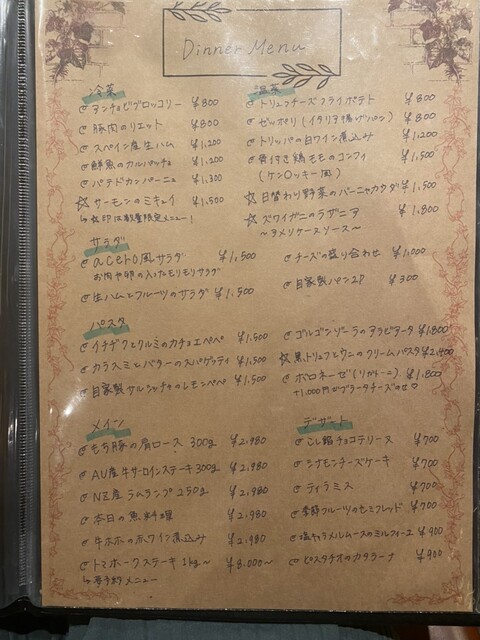 Dinner Menu
冷菜
アンチョビブロッコリー ¥800
豚肉のリエット ¥800
スペイン産生ハム ¥1,200
鮮魚のカルパッチョ ¥1,200
パテドカンパーニュ ¥1,300
☆サーモンのミキュイ ¥1,500
↳☆印は数量限定メニュー!
温菜
トリュフチーズフライポテト ¥800
ゼッポリ(イタリア揚げパン) ¥800
トリッパの白ワイン煮込み ¥1,200
骨付き鶏もものコンフィ ¥1,500
(ケン〇ッキー風)
☆日替わり野菜のバーニャカウダ ¥1,500
☆ズワイガニのラザニア ¥1,800
〜アメリケーヌソース〜
サラダ
acero風サラダ ¥1,500
お肉や卵の入ったもりもりサラダ
生ハムとフルーツのサラダ ¥1,500
チーズの盛り合わせ ¥1,000
自家製パン2P ¥300
パスタ
イチヂクとクルミのカチョエペペ ¥1,500
カラスミとバターのスパゲッティ ¥1,500
自家製サルシッチャのレモンペペ ¥1,500
ゴルゴンゾーラのアラビアータ ¥1,800
☆黒トリュフとウニのクリームパスタ ¥2,400
ボロネーゼ(リガトーニ) ¥1,800
+1,000円でブラータチーズのせ♡
メイン
もち豚の肩ロース 300g ¥2,980
AU産牛サーロインステーキ300g ¥2,980
NZ産ラムランプ 250g ¥2,980
本日の魚料理 ¥2,980
牛ホホの赤ワイン煮込み ¥2,980
トマホークステーキ 1kg〜 ¥8,000〜
↳要予約メニュー
デザート
こし餡チョコテリーヌ ¥700
シナモンチーズケーキ ¥700
ティラミス ¥700
季節フルーツのセミフレッド ¥700
塩キャラメルムースのミルフィーユ ¥900
ピスタチオのカタラーナ ¥900